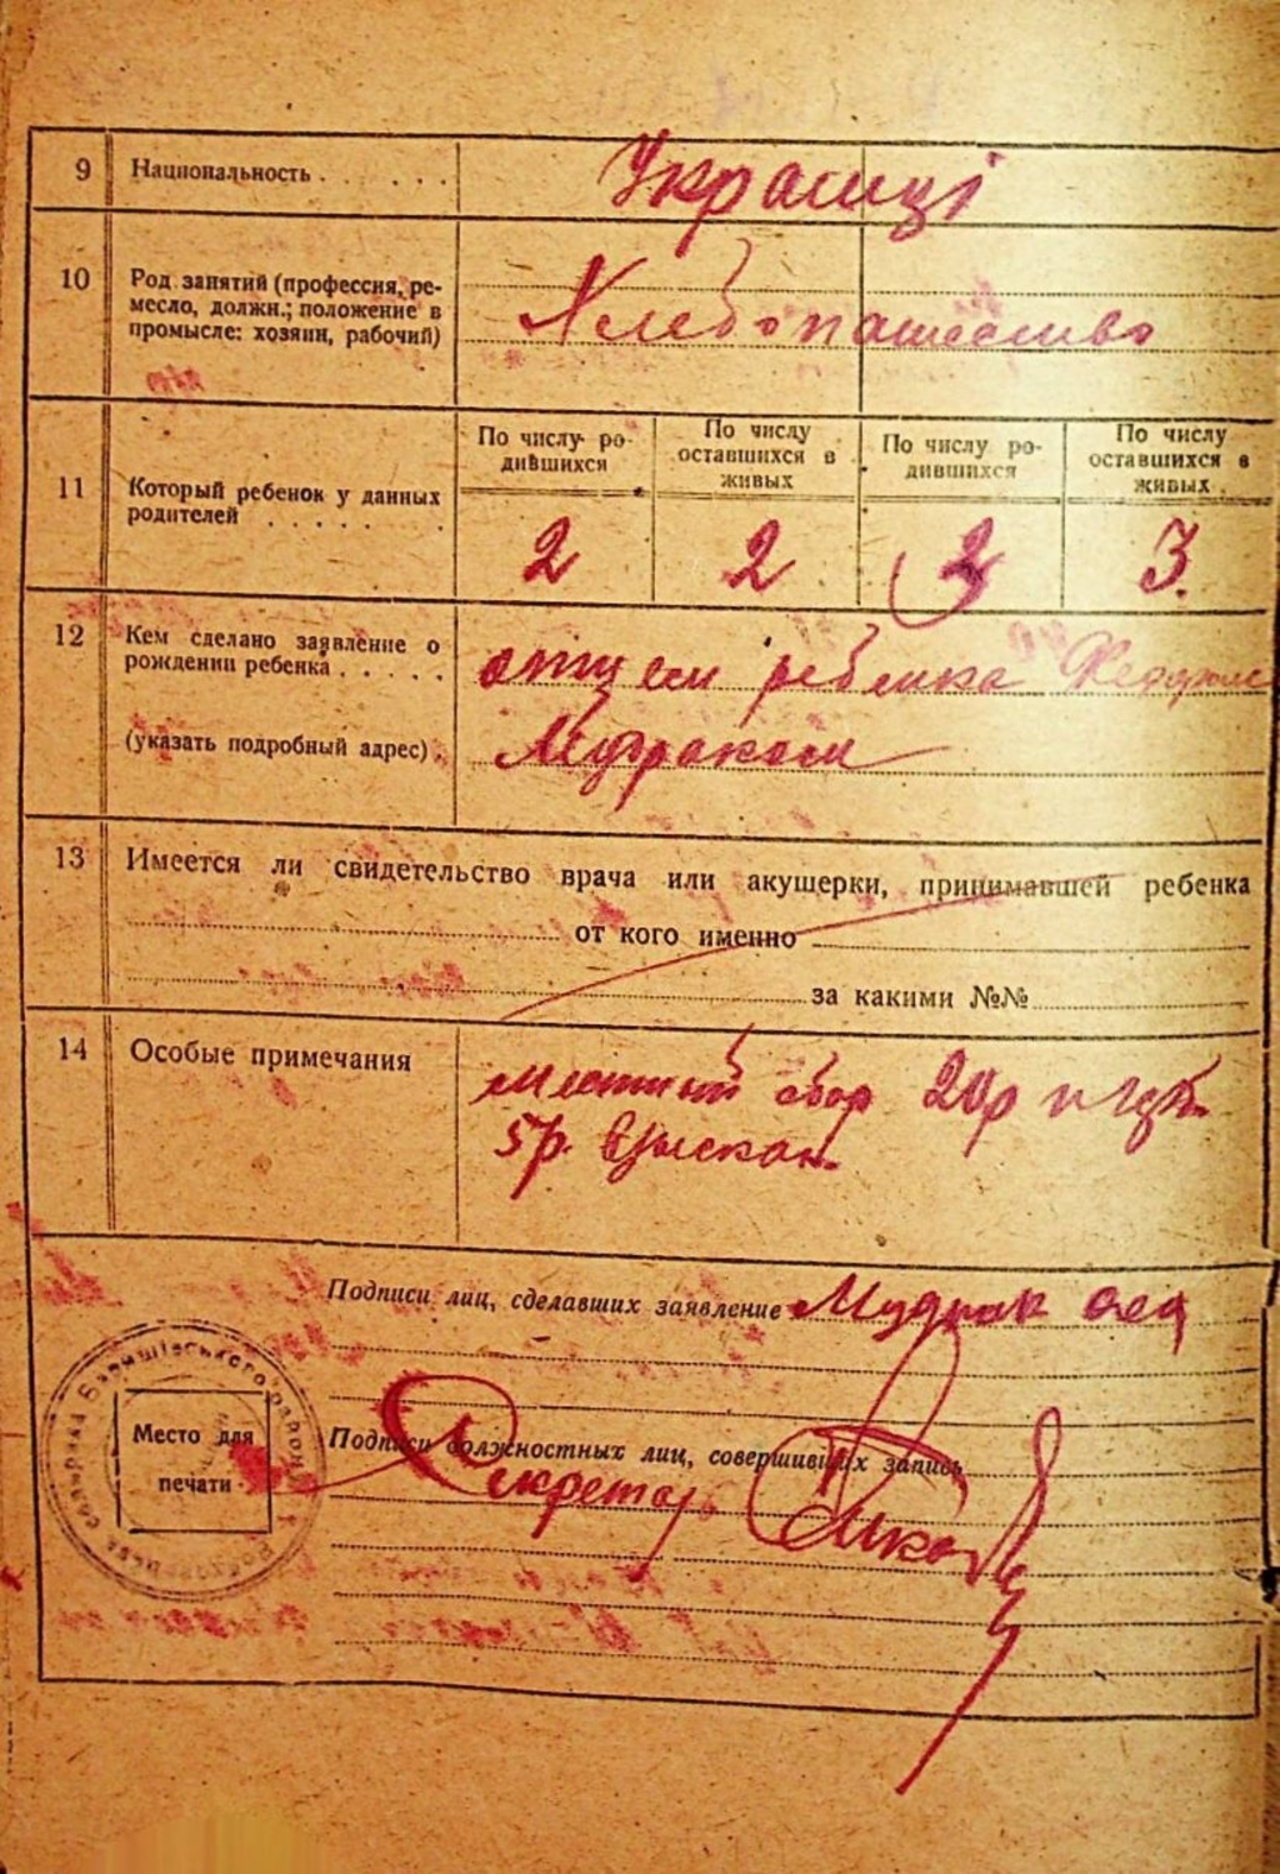 9 Национальность . . . . . Украинці
10 Род занятий (профессия, ре-
месло, должн.; положение в
промысле: хозяин, рабочий)
Хлебопашество
11 Который ребенок у данных
родителей . . . . .
По числу ро-
дившихся
По числу
оставшихся в
живых
По числу ро-
дившихся
По числу
оставшихся в
живых
2 2 3 3.
12 Кем сделано заявление о
рождении ребенка . . . . .
отцем ребенка
(указать подробный адрес) .
13 Имеется ли свидетельство врача или акушерки, принимавшей ребенка
от кого именно
за какими №№
14 Особые примечания
местный сбор 20р и
5р. взыскан.
Подписи лиц, сделавших заявление Мудрак
Подписи должностных лиц, совершивших запись
Секретарь
Место для
печати